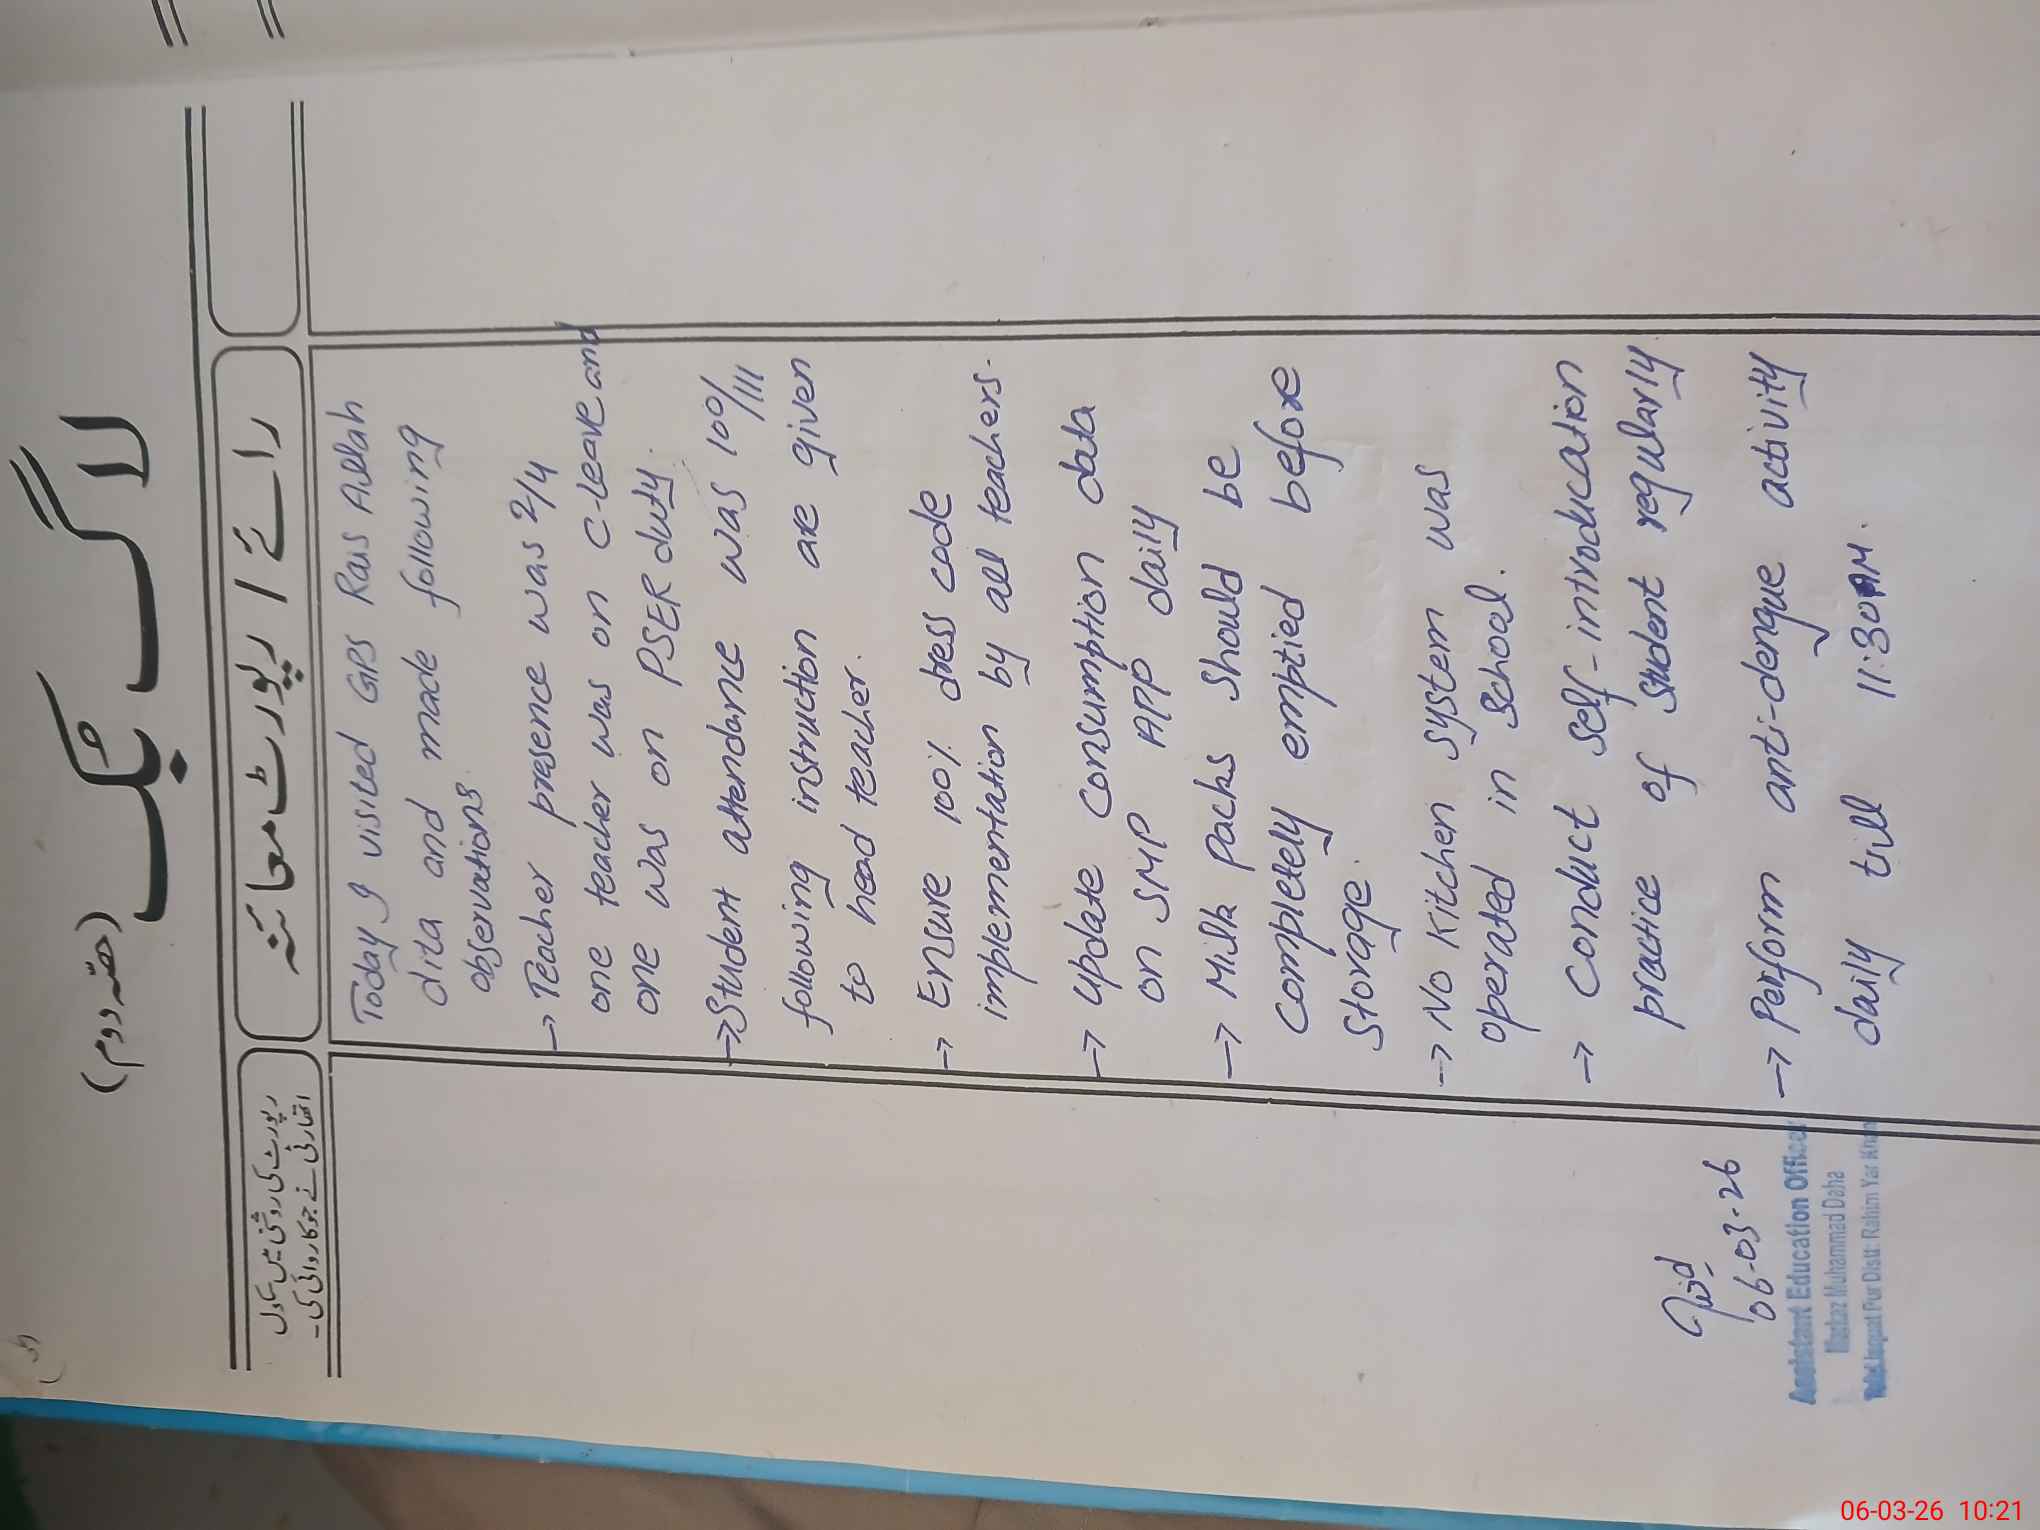 لاگ بک
(حصہ دوم)
رائے / رپورٹ معائنہ
رپورٹ کی روشنی میں سکول
اتھارٹی نے جو کاروائی کی۔
Today I visited GPS Rais Allah
dita and made following
observations.
→ Teacher presence was 2/4
one teacher was on C-leave and
one was on PSER duty.
→ Student attendance was 100/111
following instruction are given
to head teacher.
→ Ensure 100% dress code
implementation by all teachers.
→ update consumption data
on SMP APP daily
→ Milk packs should be
completely emptied before
storage.
→ No kitchen system was
operated in school.
→ Conduct self-introducation
practice of student regularly
→ Perform anti-dengue activity
daily till 11:30AM.
06-03-26
Assistant Education Officer
Markaz Muhammad Daha
Tehsil Liaqat Pur Distt: Rahim Yar Khan
06-03-26 10:21